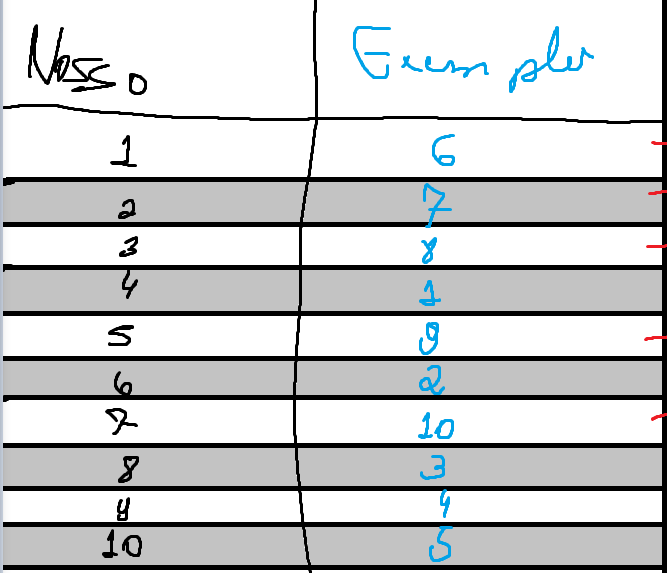 Nosso Exemplo
1 6
2 7
3 8
4 1
5 9
6 2
7 10
8 3
9 4
10 5